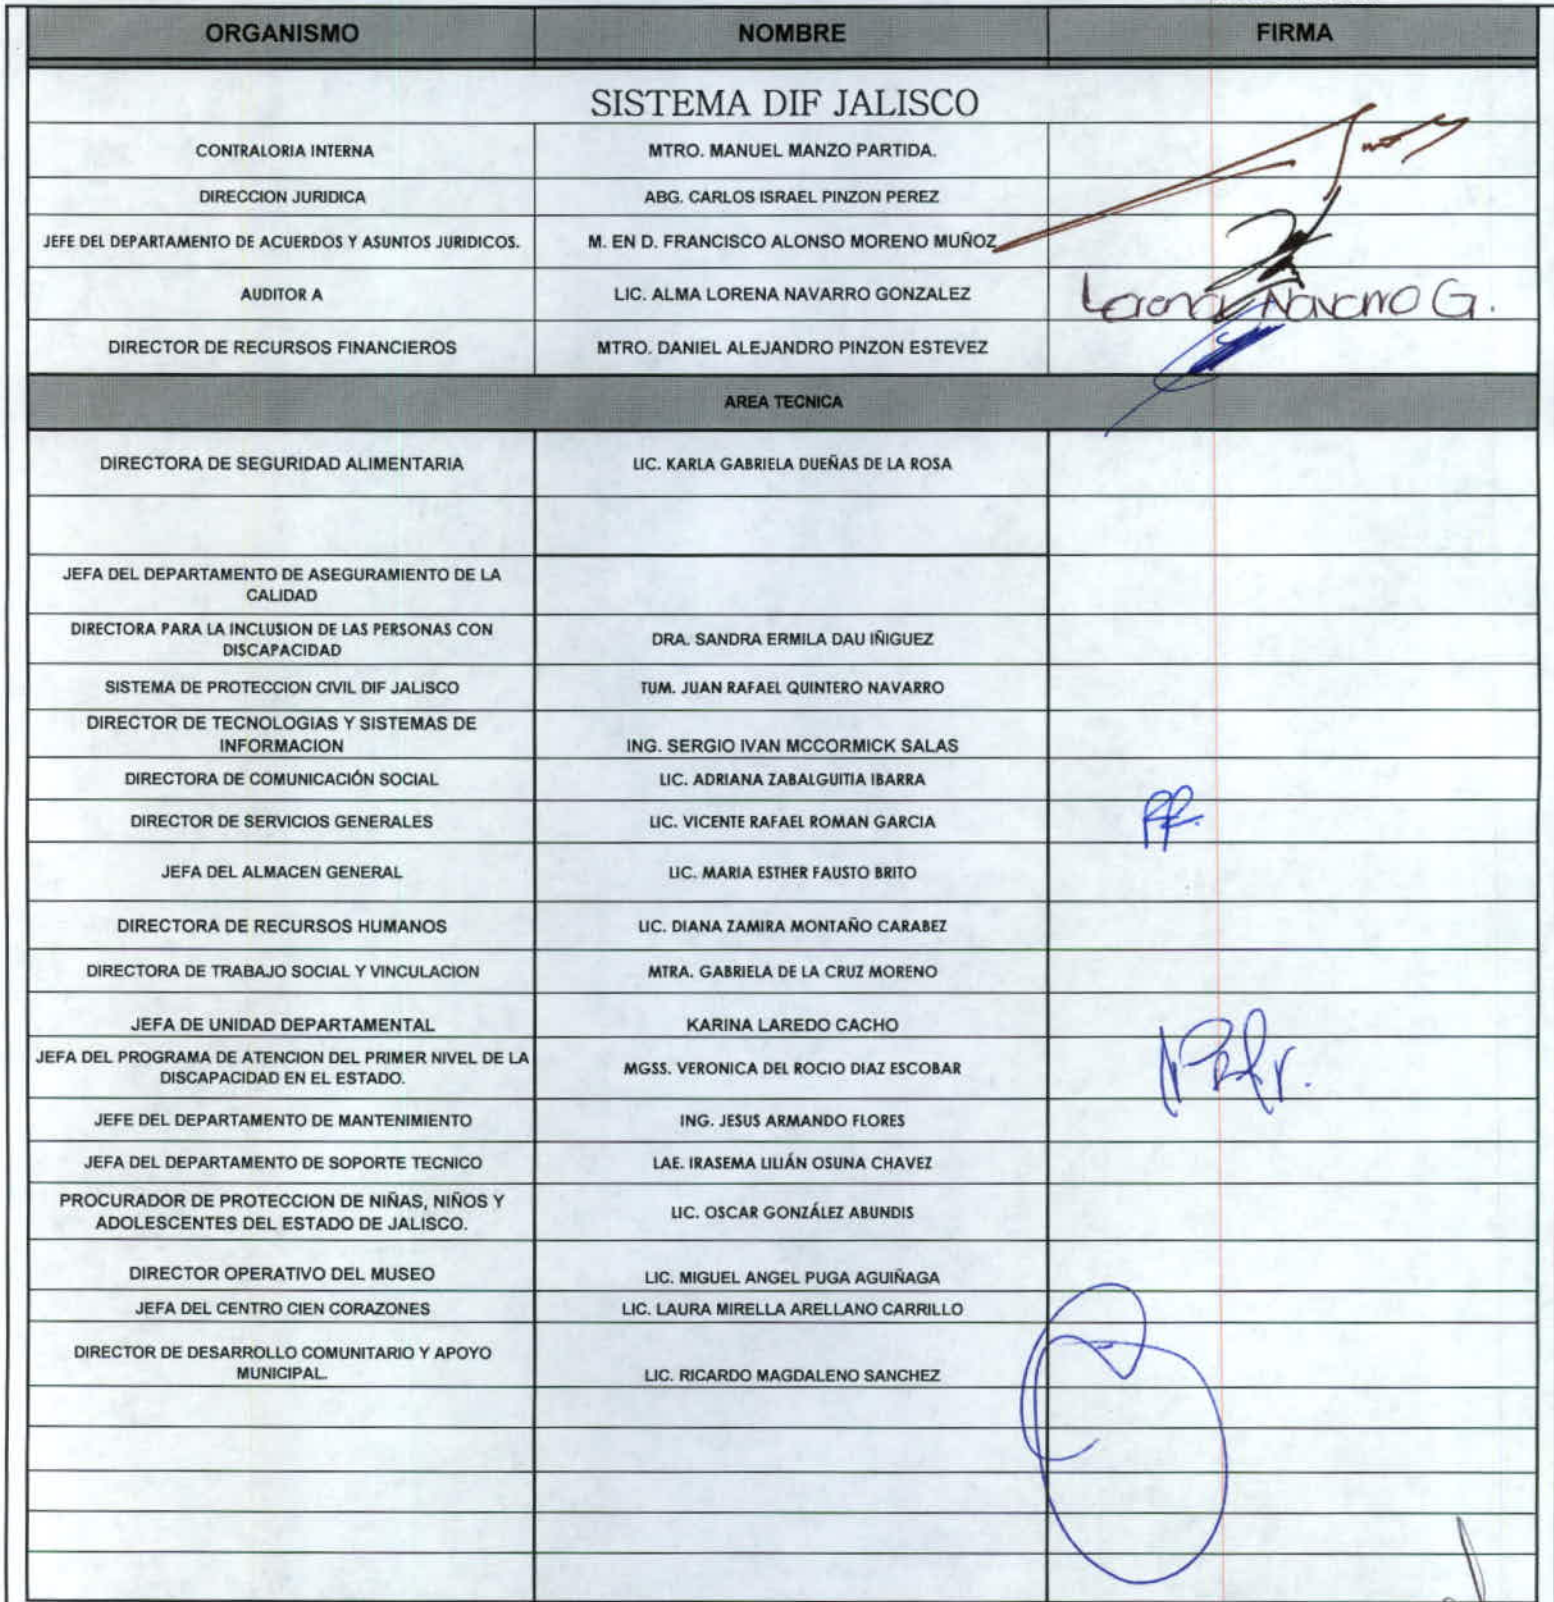 ORGANISMO NOMBRE FIRMA
SISTEMA DIF JALISCO
CONTRALORIA INTERNA MTRO. MANUEL MANZO PARTIDA.
DIRECCION JURIDICA ABG. CARLOS ISRAEL PINZON PEREZ
JEFE DEL DEPARTAMENTO DE ACUERDOS Y ASUNTOS JURIDICOS. M. EN D. FRANCISCO ALONSO MORENO MUÑOZ
AUDITOR A LIC. ALMA LORENA NAVARRO GONZALEZ Lorena Navarro G.
DIRECTOR DE RECURSOS FINANCIEROS MTRO. DANIEL ALEJANDRO PINZON ESTEVEZ
AREA TECNICA
DIRECTORA DE SEGURIDAD ALIMENTARIA LIC. KARLA GABRIELA DUEÑAS DE LA ROSA
JEFA DEL DEPARTAMENTO DE ASEGURAMIENTO DE LA
CALIDAD
DIRECTORA PARA LA INCLUSION DE LAS PERSONAS CON
DISCAPACIDAD DRA. SANDRA ERMILA DAU IÑIGUEZ
SISTEMA DE PROTECCION CIVIL DIF JALISCO TUM. JUAN RAFAEL QUINTERO NAVARRO
DIRECTOR DE TECNOLOGIAS Y SISTEMAS DE
INFORMACION ING. SERGIO IVAN MCCORMICK SALAS
DIRECTORA DE COMUNICACIÓN SOCIAL LIC. ADRIANA ZABALGUITIA IBARRA
DIRECTOR DE SERVICIOS GENERALES LIC. VICENTE RAFAEL ROMAN GARCIA
JEFA DEL ALMACEN GENERAL LIC. MARIA ESTHER FAUSTO BRITO
DIRECTORA DE RECURSOS HUMANOS LIC. DIANA ZAMIRA MONTAÑO CARABEZ
DIRECTORA DE TRABAJO SOCIAL Y VINCULACION MTRA. GABRIELA DE LA CRUZ MORENO
JEFA DE UNIDAD DEPARTAMENTAL KARINA LAREDO CACHO
JEFA DEL PROGRAMA DE ATENCION DEL PRIMER NIVEL DE LA
DISCAPACIDAD EN EL ESTADO. MGSS. VERONICA DEL ROCIO DIAZ ESCOBAR
JEFE DEL DEPARTAMENTO DE MANTENIMIENTO ING. JESUS ARMANDO FLORES
JEFA DEL DEPARTAMENTO DE SOPORTE TECNICO LAE. IRASEMA LILIÁN OSUNA CHAVEZ
PROCURADOR DE PROTECCION DE NIÑAS, NIÑOS Y
ADOLESCENTES DEL ESTADO DE JALISCO. LIC. OSCAR GONZÁLEZ ABUNDIS
DIRECTOR OPERATIVO DEL MUSEO LIC. MIGUEL ANGEL PUGA AGUIÑAGA
JEFA DEL CENTRO CIEN CORAZONES LIC. LAURA MIRELLA ARELLANO CARRILLO
DIRECTOR DE DESARROLLO COMUNITARIO Y APOYO
MUNICIPAL. LIC. RICARDO MAGDALENO SANCHEZ